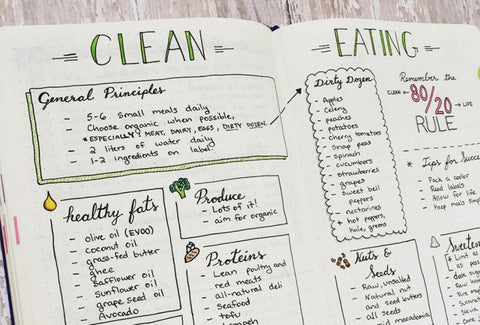 CLEAN
General Principles
- 5-6 small meals daily
- Choose organic when possible,
*ESPECIALLY MEAT, DAIRY, EGGS, DIRTY DOZEN
- 2 liters of water daily
- 1-2 ingredients on label
healthy fats
- olive oil (EVOO)
- coconut oil
- grass-fed butter
- ghee
- Safflower oil
- Sunflower oil
- grape seed oil
- Avocado
Produce
- Lots of it!
- aim for organic
Proteins
- Lean poultry and
red meats
- all-natural deli
- Seafood
- tofu
- tempeh
EATING
Dirty Dozen
- Apples
- Celery
- peaches
- potatoes
- cherry tomatoes
- Snap peas
- Spinach
- cucumbers
- strawberries
- grapes
- Sweet bell
peppers
- nectarines
* hot peppers,
Kale, greens
Remember the
CLEAN 80/20 LIFE
RULE
* Tips for Succe
- Pack a cooler
- Read labels
- Allow for life
- Keep meals simple
Nuts &
Seeds
- Raw, unsalted
- Natural nut
and seed butters
- all seeds
macadamia
Sweetene
Limit as
as pos
Raw